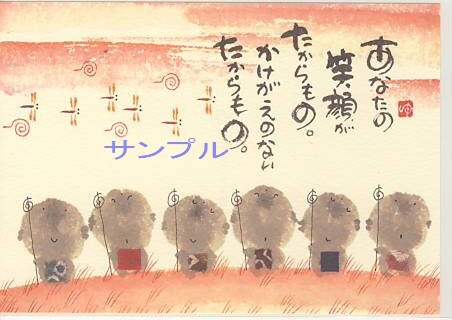 あなたの
笑顔が
たからもの。
かけがえのない
たからもの。
サンプル